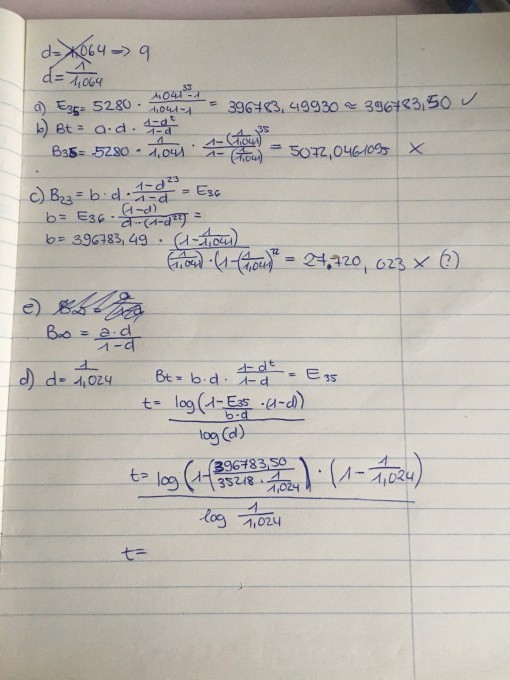 d= 1,064 => q
d= 1/1,064
a) E35= 5280 · (1,041^35 -1)/(1,041-1) = 396783,49930 ≈ 396783,50 ✓
b) Bt = a·d · (1-d^t)/(1-d)
B35= 5280 · 1/1,041 · (1-(1/1,041)^35)/(1-(1/1,041)) = 5072,0461095 X
c) B23 = b·d · (1-d^23)/(1-d) = E36
b= E36 · (1-d)/(d·(1-d^22)) =
b= 396783,49 · (1-1/1,041)/((1/1,041)·(1-(1/1,041)^22) = 27.720,623 X (?)
e)
B∞ = (a·d)/(1-d)
d) d= 1/1,024 Bt= b·d · (1-d^t)/(1-d) = E35
t= log(1-E35/(b·d) ·(1-d))/log(d)
t= log(1-(396783,50/(35218 · 1/1,024)) · (1-1/1,024)/log 1/1,024
t=